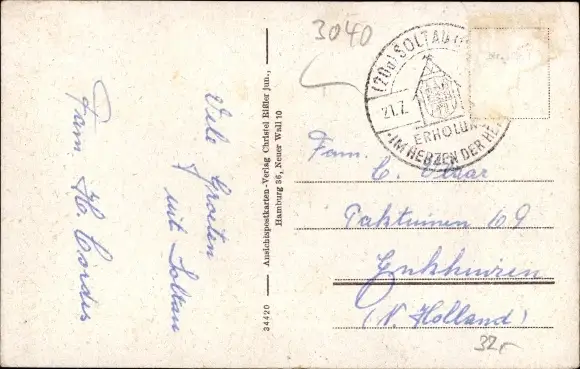 Viele Grüßen
mit Soltau
Fam. H. Cordes
34420 — Ansichtspostkarten-Verlag Christel Bißler jun.,
Hamburg 36, Neuer Wall 10
3040
(20a) SOLTAU
21.7.
ERHOLUN
·IM HERZEN DER HE
Fam.
C.
69
Enkhuizen
(N. Holland)
32,-